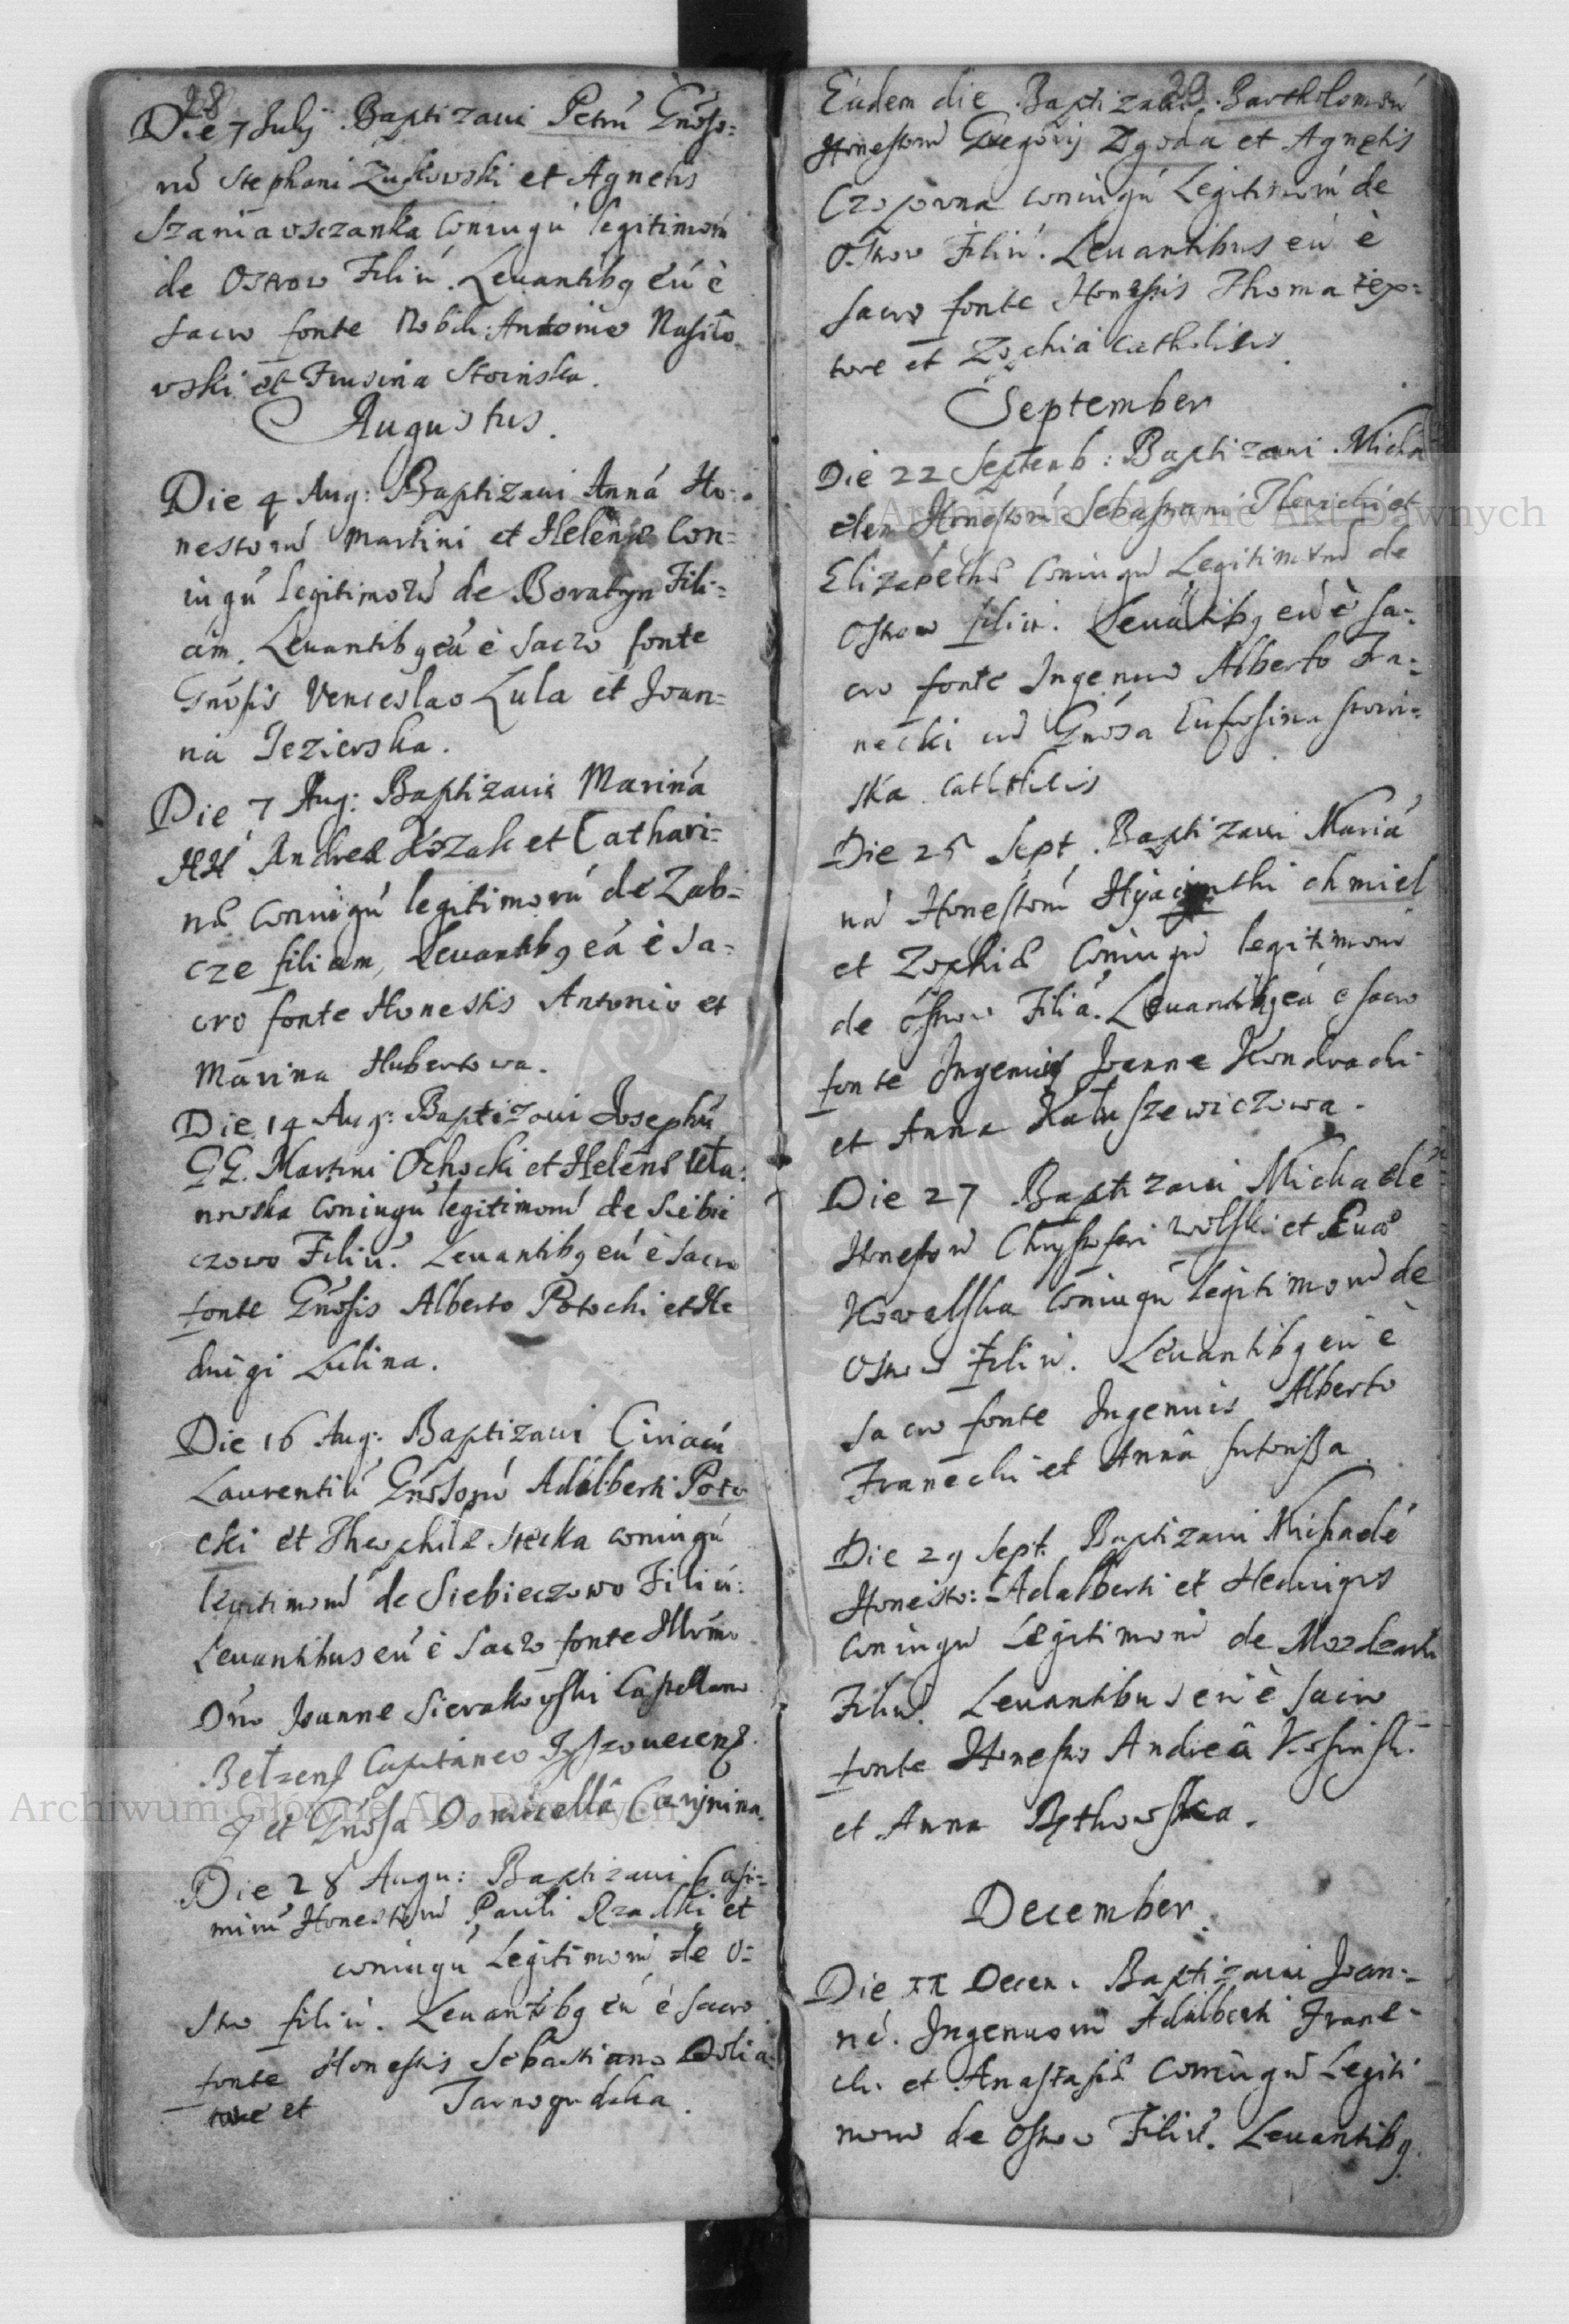 28
Die 7 Julij Baptizaui Petrú Gnõso=
rú Stephani Zukowski et Agnetis
Szaniawsczanka Coniugú legitimorú
de Ostrow Filiú. Leuantibq eú è
sacro fonte Nobili: Antonio Nasiło=
wski et Frusina Stoinska.
Augustus.
Die 4 Aug: Baptizaui Anná Ho=
nestorú Martini et Helenæ Con=
iugú legitimorú de Boratyn Fili=
am. Leuantibq eá è sacro fonte
Gnõsis Venceslao Lula et Joan=
na Jezierska.
Die 7 Aug: Baptizaui Mariná
HH Andreæ Kozak et Cathari=
næ Coniugú legitimorú de Zab=
cze filiam, Leuantibq eá è sa=
cro fonte Honestis Antonio et
Marina Hubertowa.
Die 14 Aug: Baptizaui Josephú
GG. Martini Ochocki et Helenæ Uła=
nowska Coniugú legitimorú de Siebie
czowo Filiú. Leuantibq eú è sacro
fonte Gnõsis Alberto Potocki et He
duigi Lulina.
Die 16 Aug: Baptizaui Ciriacú
Laurentiú Gnõsorú Adalberti Poto
cki et Theophilæ Stecka coniugú
legitimorú de Siebieczowo Filiú.
Leuantibus eú è sacro fonte Illrmo
Dno Joanne Sierakowski Castellano
Bełzens Capitaneo Tyszouecens
et Gnõsa Domicella Cieszynina
Die 28 Augu: Baptizaui Casi=
mirú Honestorú Pauli Rzadki et
coniugú Legitimorú de O=
strow filiú. Leuantibq eú è sacro
fonte Honestis Sebastiano Dolia
tore et Tarnogudzka.
29
Eadem die Baptizaui Bartholomeú
Honestorú Gregorij Zgoda et Agnetis
Czopowna coniugú Legitimorú de
Ostrow Filiú. Leuantibus eú è
sacro fonte Honestis Thoma tex=
tore et Zophia catholicis.
September
Die 22 Septemb: Baptizaui Micha
elem Honestorú Sebastiani et
Elizabethæ Coniugú Legitimorú de
Ostrow filiú. Leuátibq eú è sa=
cro fonte Ingenuo Alberto Fra=
necki cú Gnõsa Eufrosina stoin=
ska Catholicis
Die 25 Sept. Baptizaui Mariá
ná Honestorú Hyacynthi chmiel
et Zophiæ Coniugú legitimorú
de Ostrow Filiá. Leuantibq eá e sacro
fonte Ingenuis Joanne Kondracki
et Anna Kałuszewiczowa.
Die 27 Baptizaui Michaelé
Honestorú Chrystoferi Wolski et Euæ
Kowalska Coniugú legitimorú de
Ostrow Filiú. Leuantibq eú è
sacro fonte Ingenuis Alberto
Franecki et Anná sutorissa.
Die 29 Sept. Baptizaui Michaelé
Honesto: Adalberti et Heduigis
Coniugú Legitimorú de
Filiú. Leuantibus eú è sacro
fonte Honesto Andreâ Kosinski
et Anna Rytkowska.
December.
Die XX Decem: Baptizaui Joan=
né. Ingenuorú Adalberti Frane=
cki et Anastasiæ Coniugú Legiti
morú de Ostrow Filiú. Leuantibq
Archiwum Główne Akt Dawnych
Archiwum Główne Akt Dawnych